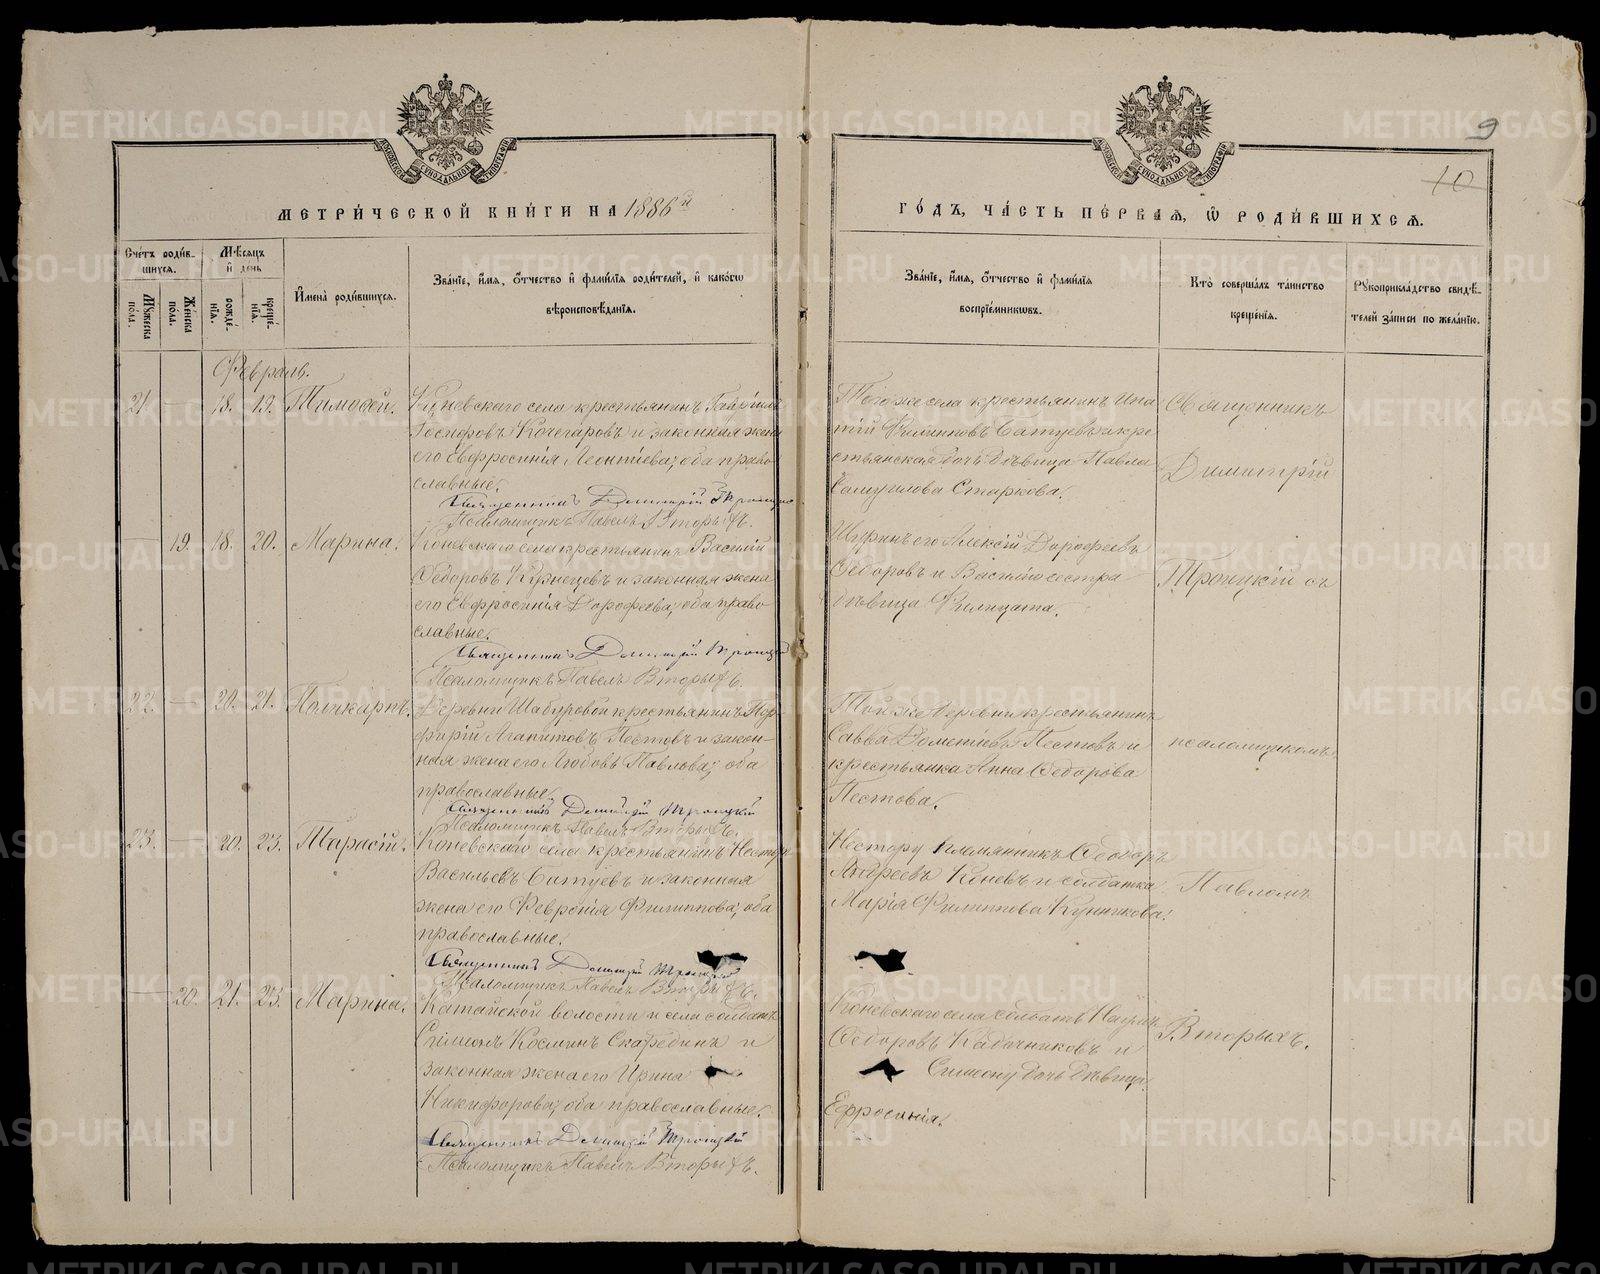 9
10
МЕТРИ́ЧЕСКОЙ КНИ́ГИ НА 1886й
ГО́ДЪ, ЧА́СТЬ ПЕ́РВАѦ, Ѽ РОДИ́ВШИХСѦ.
Сче́тъ роди́в-
шихся.
Мꙋжеска по́ла.
Же́нска по́ла.
Мѣ́сѧцъ и҆ де́нь
рожде́-нїѧ.
креще́-нїѧ.
И҆мена̀ роди́вшихсѧ.
Зва́нїе, и҆́мѧ, ѻ҆́тчество и҆ фами́лїѧ роди́телей, и҆ како́гѡ
вѣроисповѣ́данїѧ.
Зва́нїе, и҆́мѧ, ѻ҆́тчество и҆ фами́лїѧ
воспрїе́мникѡвъ.
Кто̀ соверша́лъ та́инство
креще́нїѧ.
Рꙋкоприкла́дство свидѣ́-
телей за́писи по жела́нїю.
Февраль.
21 — 18. 19. Тимофей.
Коневскаго села крестьянинъ Гавріилъ
Іосифовъ Кочегаровъ и законная жена
его Евфросинія Леонтіева; оба право
славные.
Священникъ Димитрій Троицкій
Псаломщикъ Павелъ Вторыхъ.
Тогоже села крестьянинъ Ипа
тій Филипповъ Батуевъ и кре
стьянская дочь дѣвица Павла
Самуилова Старкова.
Священникъ
Димитрій
— 19. 18. 20. Марина.
Коневскаго села крестьянинъ Василій
Ѳедоровъ Кузнецовъ и законная жена
его Евфросинія Дорофеева; оба право
славные.
Священникъ Димитрій Троицкій
Псаломщикъ Павелъ Вторыхъ.
Шуринъ его Алексій Дорофеевъ
Ѳедоровъ и Василію сестра
дѣвица Филицата.
Троицкій съ
22. — 20. 21. Поликарпъ.
Деревни Шабуровой крестьянинъ Пор-
фирій Агапитовъ Пестовъ и закон-
ная жена его Любовь Павлова; оба
православные.
Священникъ Димитрій Троицкій
Псаломщикъ Павелъ Вторыхъ.
Той же деревни крестьянинъ
Савва Дометіевъ Пестовъ и
крестьянка Анна Ѳедорова
Пестова.
псаломщикомъ
23. — 20. 23. Тарасій.
Коневскаго села крестьянинъ Несторъ
Васильевъ Батуевъ и законная
жена его Февронія Филиппова; оба
православные.
Священникъ Димитрій Троицкій
Псаломщикъ Павелъ Вторыхъ.
Нестору племянникъ Ѳеодоръ
Андреевъ Коневъ и солдатка
Марія Филиппова Кунникова.
Павломъ
— 20. 21. 23. Марина.
Катайской волости и села солдатъ
Симеонъ Косминъ Скарединъ и
законная жена его Ирина
Никифорова; оба православные.
Священникъ Димитрій Троицкій
Псаломщикъ Павелъ Вторыхъ.
Коневскаго села солдатъ Наумъ
Ѳедоровъ Кадочниковъ и
Симеону дочь дѣвица
Ефросинія.
Вторыхъ.